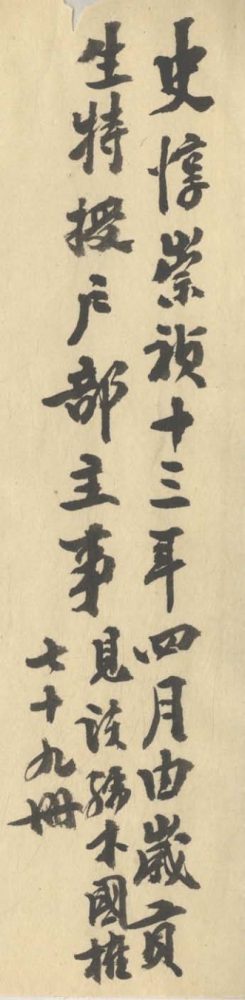 史惇崇禎十三年四月由歲貢
生特授户部主事見談孺木國榷
七十九冊